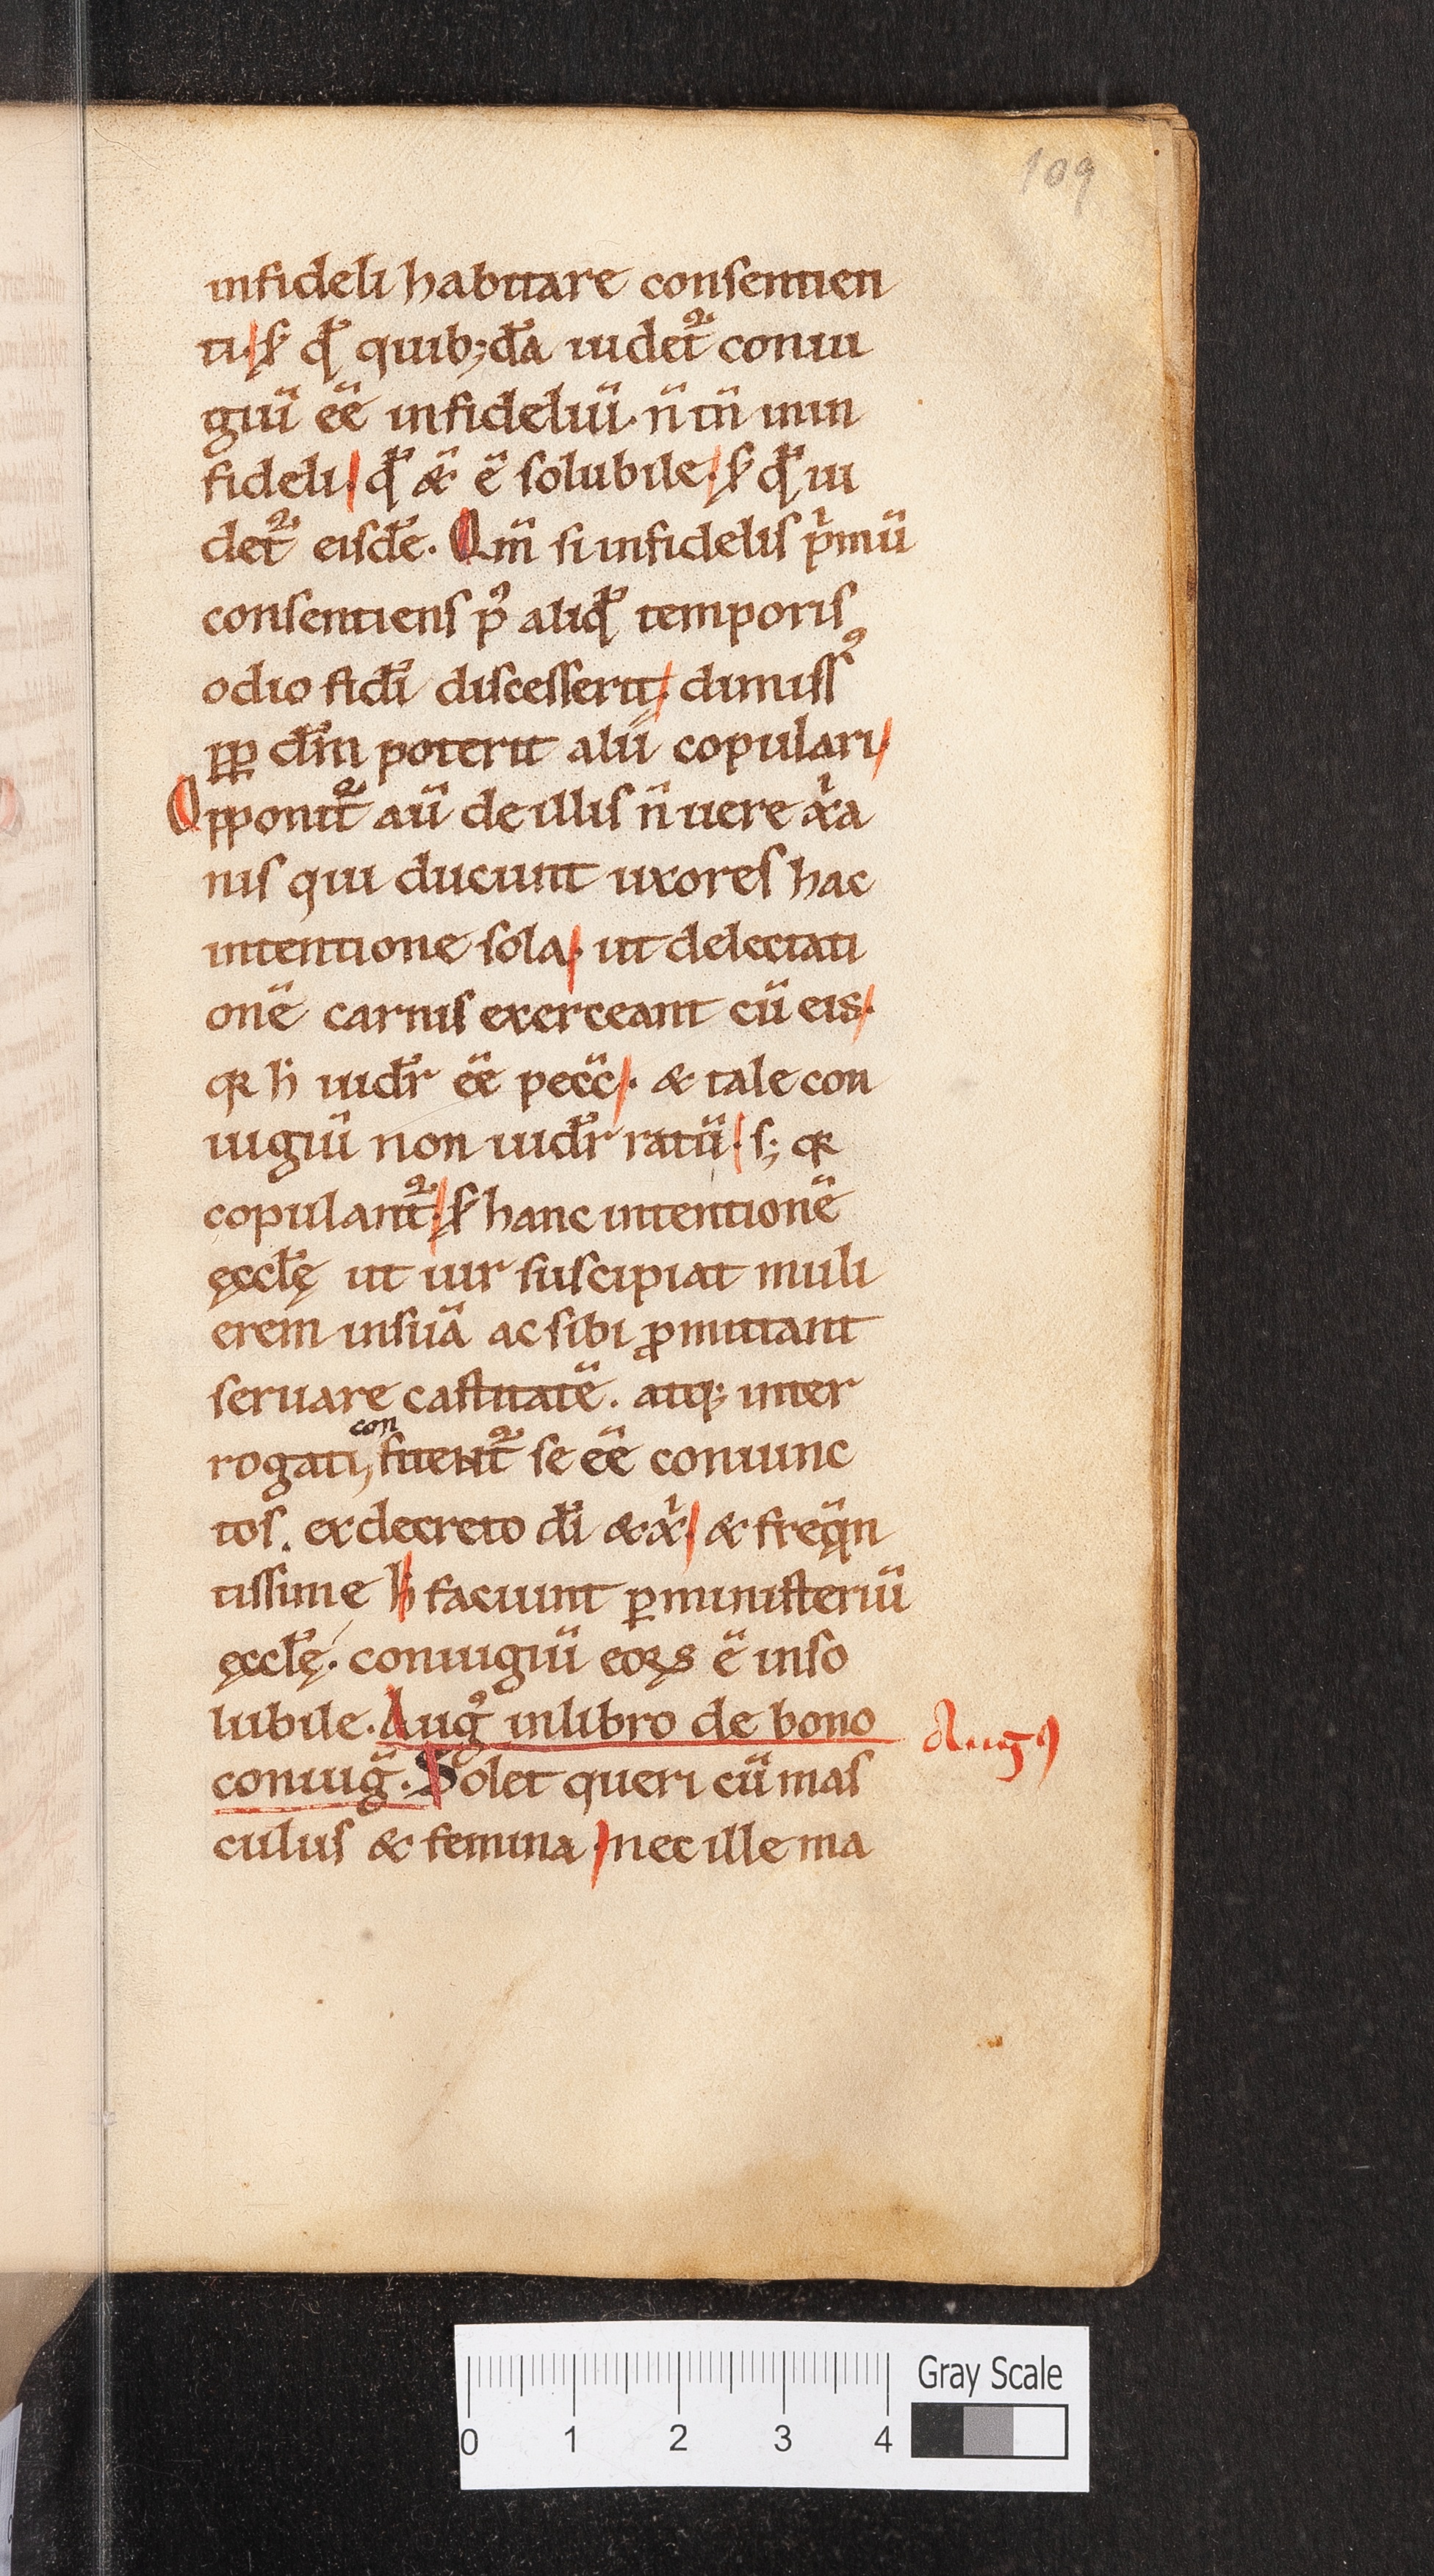 109
infideli habitare consentien
ti. sꝫ qđ quib; dā uidet᷑ coniu
giū eē infideliū. n̄ tn̄ in in
fideli. qđ & ē solubile. sꝫ qđ ui
det᷑ eisdē. Qm̄ si infidelis pͥmū
consentiens pꝰ aliqđ temporis
odio fidī discesserit. dimissꝰ
ꝓp dm̄ poterit aliī copulari
Opponit᷑ aū de illis n̄ uere xͥa
nis qui ducunt uxores hac
intentione sola. ut delectati
onē carnis exerceant cū eis.
qꝛ h̄ uidr̄ eē pecc̄. & tale con
iugiū non uidr̄ ratū. s; qꝛ
copulant᷑. sꝫ hanc intentionē
ęccłę ut uir suscipiat muli
erem in suā ac sibi ꝓmittant
seruare castitatē. atq; inter
rogati, con fitent᷑ se eē coniunc
tos. ex decreto dī & xͥ. & freq̄n
tissime h̄ faciunt ꝑ ministeriū
ęccłę. coniugiū eoꝝ ē inso
lubile. Augꝰ in libro de bono
coniuḡ. Solet queri cū mas
culus & femina. nec ille ma
Augꝰ
Gray Scale
0 1 2 3 4